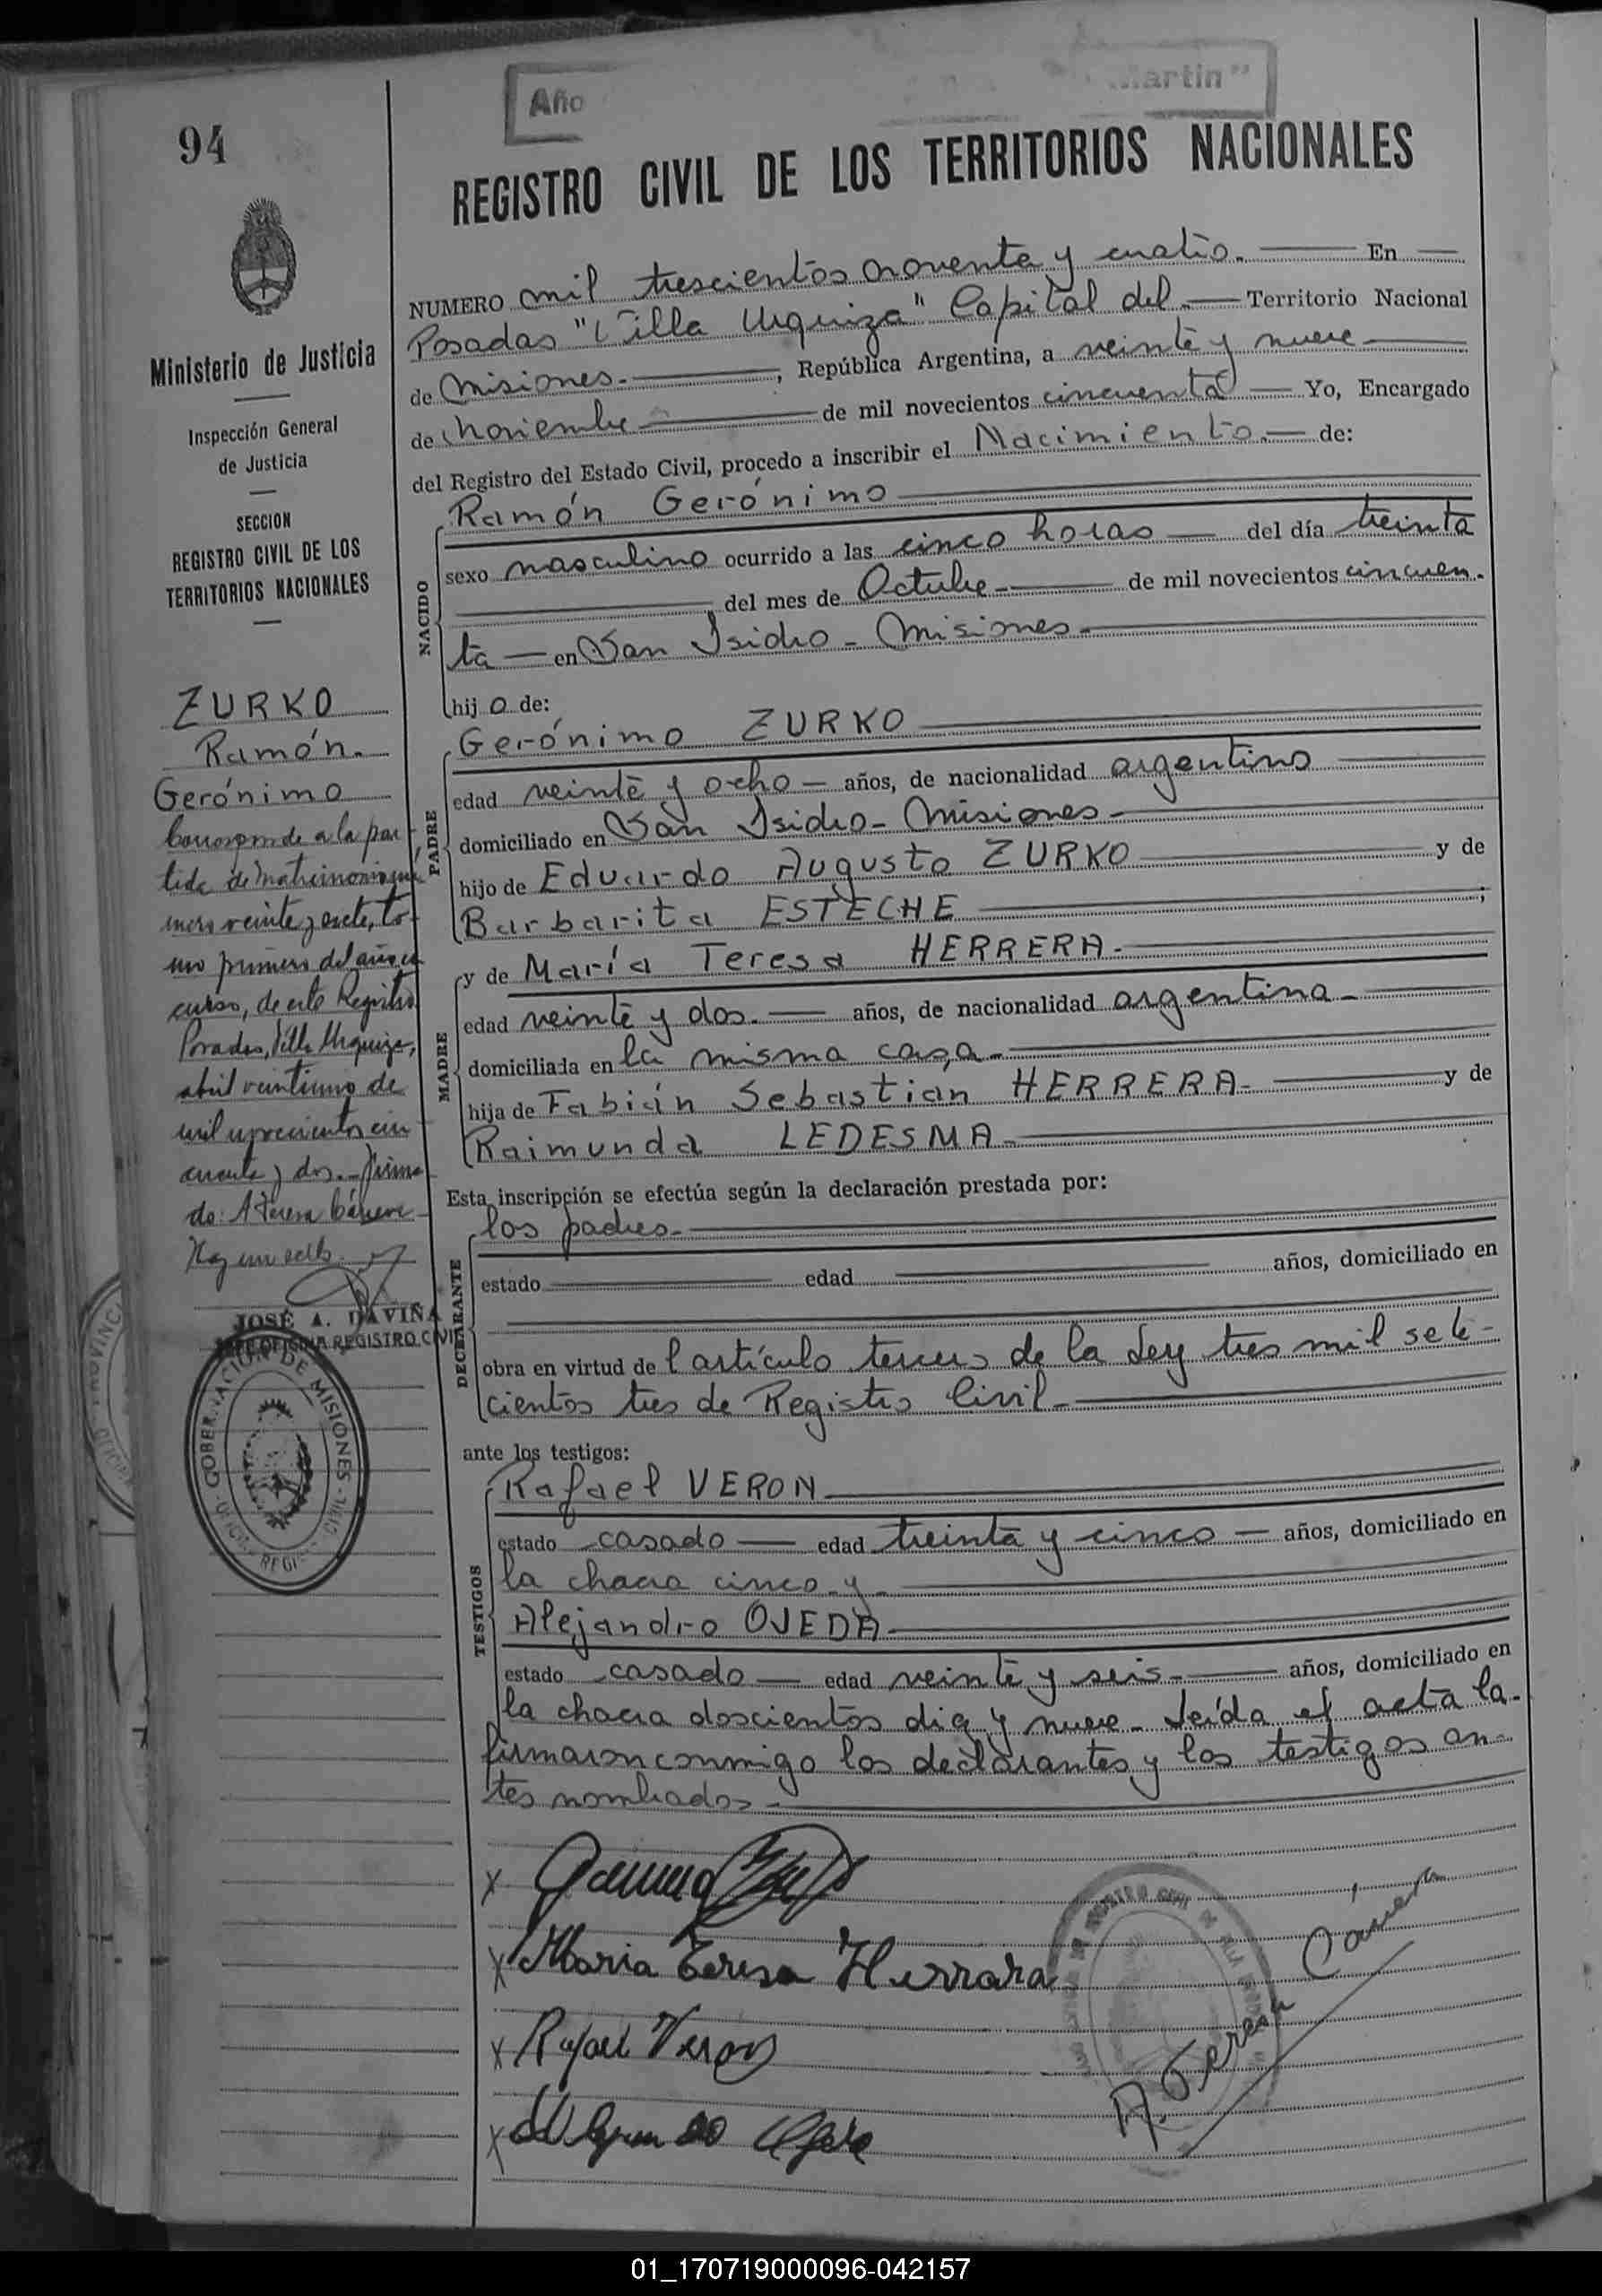 Año
artin"
94
REGISTRO CIVIL DE LOS TERRITORIOS NACIONALES
Ministerio de Justicia
Inspección General
de Justicia
SECCION
REGISTRO CIVIL DE LOS
TERRITORIOS NACIONALES
NUMERO mil trescientos noventa y cuatro. En
Posadas "Villa Urquiza" Capital del Territorio Nacional
de Misiones. , República Argentina, a veinte y nueve
de Noviembre de mil novecientos cincuenta Yo, Encargado
del Registro del Estado Civil, procedo a inscribir el Nacimiento. de:
NACIDO
Ramón Gerónimo
sexo masculino ocurrido a las cinco horas del día treinta
del mes de Octubre de mil novecientos cincuen-
ta en San Isidro - Misiones-
hijo de:
PADRE
Gerónimo ZURKO
edad veinte y ocho años, de nacionalidad argentino
domiciliado en San Isidro - Misiones-
hijo de Eduardo Augusto ZURKO y de
Barbarita ESTECHE ;
MADRE
y de María Teresa HERRERA-
edad veinte y dos. años, de nacionalidad argentina-
domiciliada en la misma casa-
hija de Fabián Sebastián HERRERA- y de
Raimunda LEDESMA-
Esta inscripción se efectúa según la declaración prestada por:
DECLARANTE
los padres-
estado edad años, domiciliado en
obra en virtud del artículo tercero de la Ley tres mil sete-
cientos tres de Registro Civil-
ante los testigos:
TESTIGOS
Rafael VERON
estado casado edad treinta y cinco años, domiciliado en
la chacra cinco y
Alejandro OJEDA
estado casado edad veinte y seis- años, domiciliado en
la chacra doscientos diez y nueve- Leída el acta la-
firmaron conmigo los declarantes y los testigos an-
tes nombrados
ZURKO
Ramón.
Gerónimo
Corresponde a la par
tida de matrimonio nú
mero veinte y siete, to-
mo primero del año en
curso, de este Registro
Posadas, Villa Urquiza,
abril veintiuno de
mil novecientos cin
cuenta y dos.- Firma
do: A Teresa Cáceres
Hay un sello.
JOSÉ A. DAVIÑA
JEFE OFICINA REGISTRO CIVIL
GOBERNACION DE MISIONES
x
x Maria Teresa Herrara
x Rafael Veron
x
A. Teresa Cáceres
01_170719000096-042157